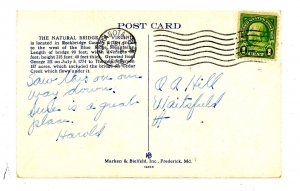 POST CARD
THE NATURAL BRIDGE OF VIRGINIA
is located in Rockbridge County
to the west of the Blue Ridge Mountains.
Length of bridge 90 feet, width
feet, height 215 feet, 40 feet thick.
George III on July 5, 1774 to Thomas Jefferson
157 acres, which included the bridge
Creek which flows under it.
Saw this on our
way down.
Luce is a great
place.
Harold
R A Hill
Waitsfield
Vt
Marken & Bielfeld, Inc., Frederick, Md.